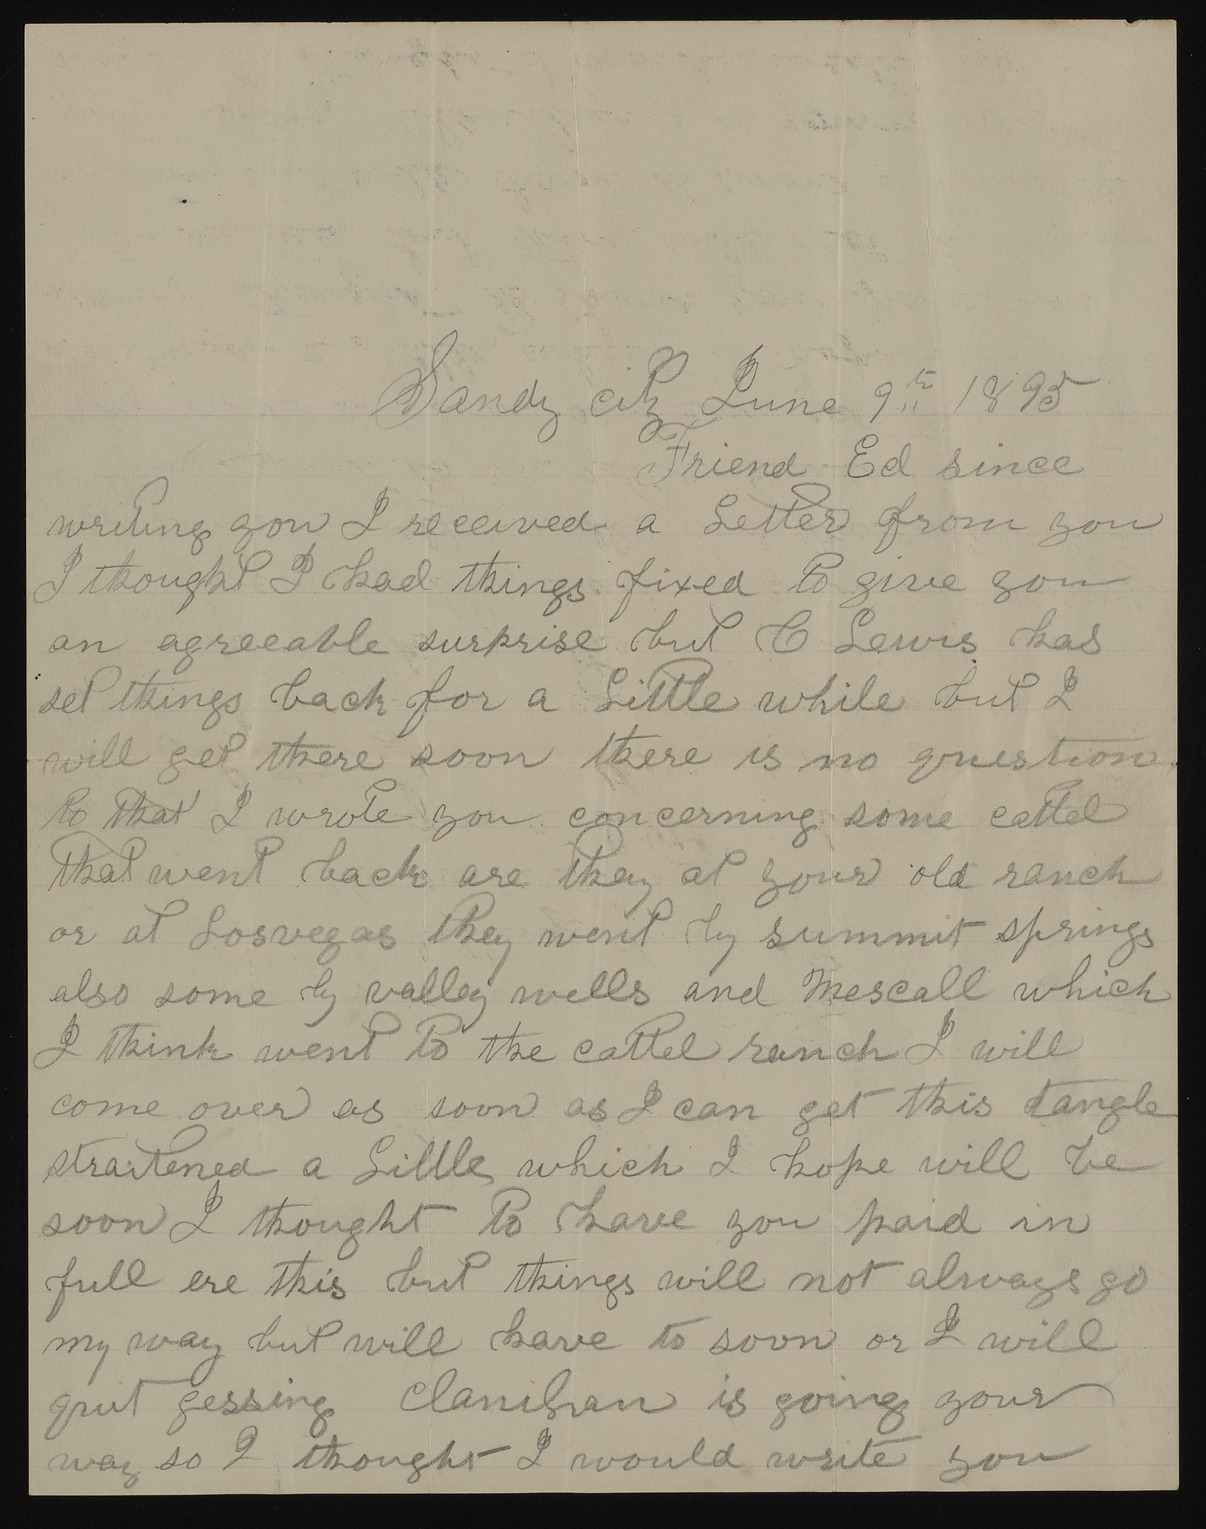 Sandy city June 9th 1895
Friend Ed since
writing you I received a Letter from you
I thought I had things fixed to give you
an agreeable surprise but C Lewis has
set things back for a Little while but I
will get there soon there is no question
to that I wrote you concerning some cattel
that went back are they at your old ranch
or at Losvegas they went by summit springs
also some by valley wells and Mescall which
I think went to the cattel ranch I will
come over as soon as I can get this tangle
straitened a Little which I hope will be
soon I thought to have you paid in
full ere this but things will not always go
my way but will have to soon or I will
quit gessing Clanihan is going your
way so I thought I would write you